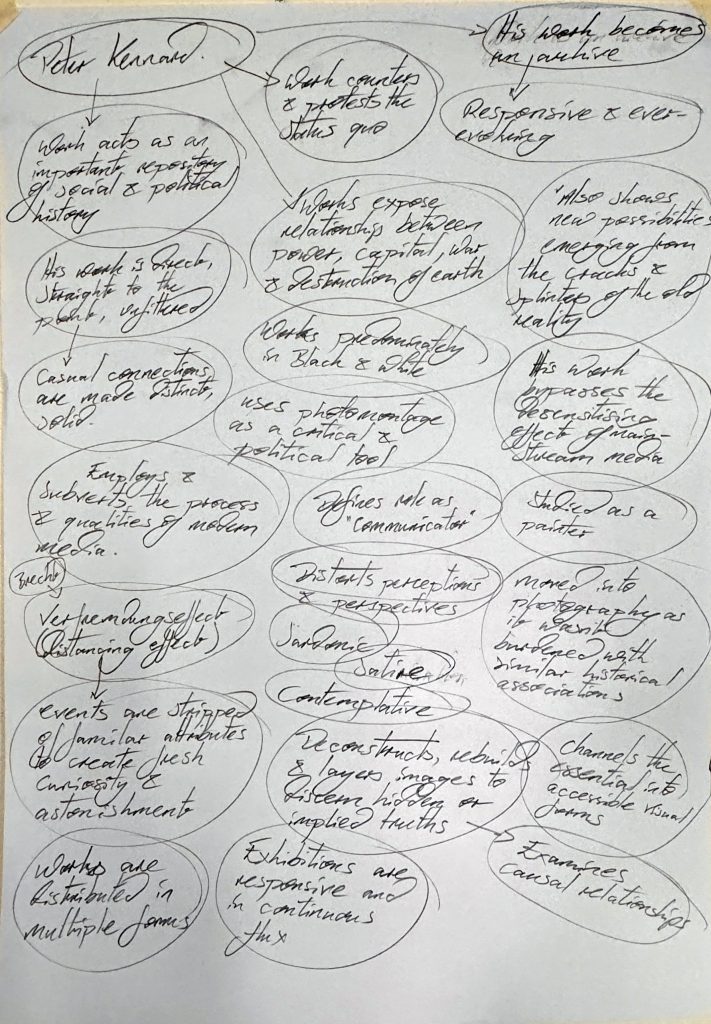 Peter Kennard.
His work becomes
an archive
Work counters
& protests the
status quo
Responsive & ever-
evolving
Work acts as an
important repository
of social & political
history
Works expose
relationships between
power, capital, war
& destruction of earth
"Also shows
new possibilities
emerging from
the cracks &
splinters of the old
reality
His work is direct,
straight to the
point, unfiltered
Works predominately
in Black & white
His work
bypasses the
desensitising
effect of main-
stream media
Casual connections
are made distinct,
solid.
uses photomontage
as a critical &
political tool
Employs &
subverts the process
& qualities of modern
media.
Defines role as
"communicator"
Studied as a
painter
Brecht
Verfremdungseffect
(distancing effect)
Distorts perceptions
& perspectives
moved into
photography as
it wasn't
burdened with
similar historical
associations
Sardonic
Satire
Contemplative
events are stripped
of familar attributes
to create fresh
curiosity &
astonishment
Deconstructs, rebuilds
& layers images to
discern hidden or
implied truths
Channels the
essential into
accessible visual
forms
Works are
distributed in
multiple forms
Exhibitions are
responsive and
in continuous
flux
Examines
causal relationships